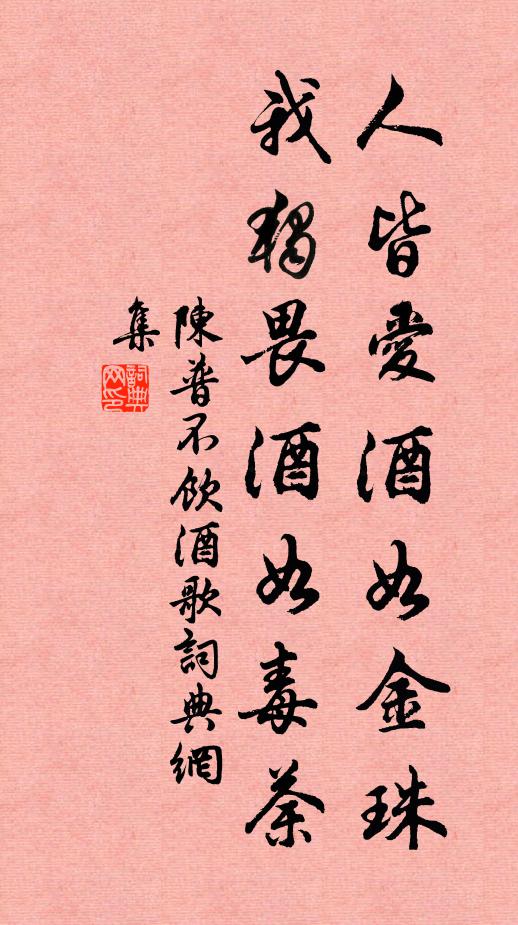 人皆愛酒如金珠
我獨畏酒如毒荼
陳普不飲酒歌詞典網
集
詞典网印